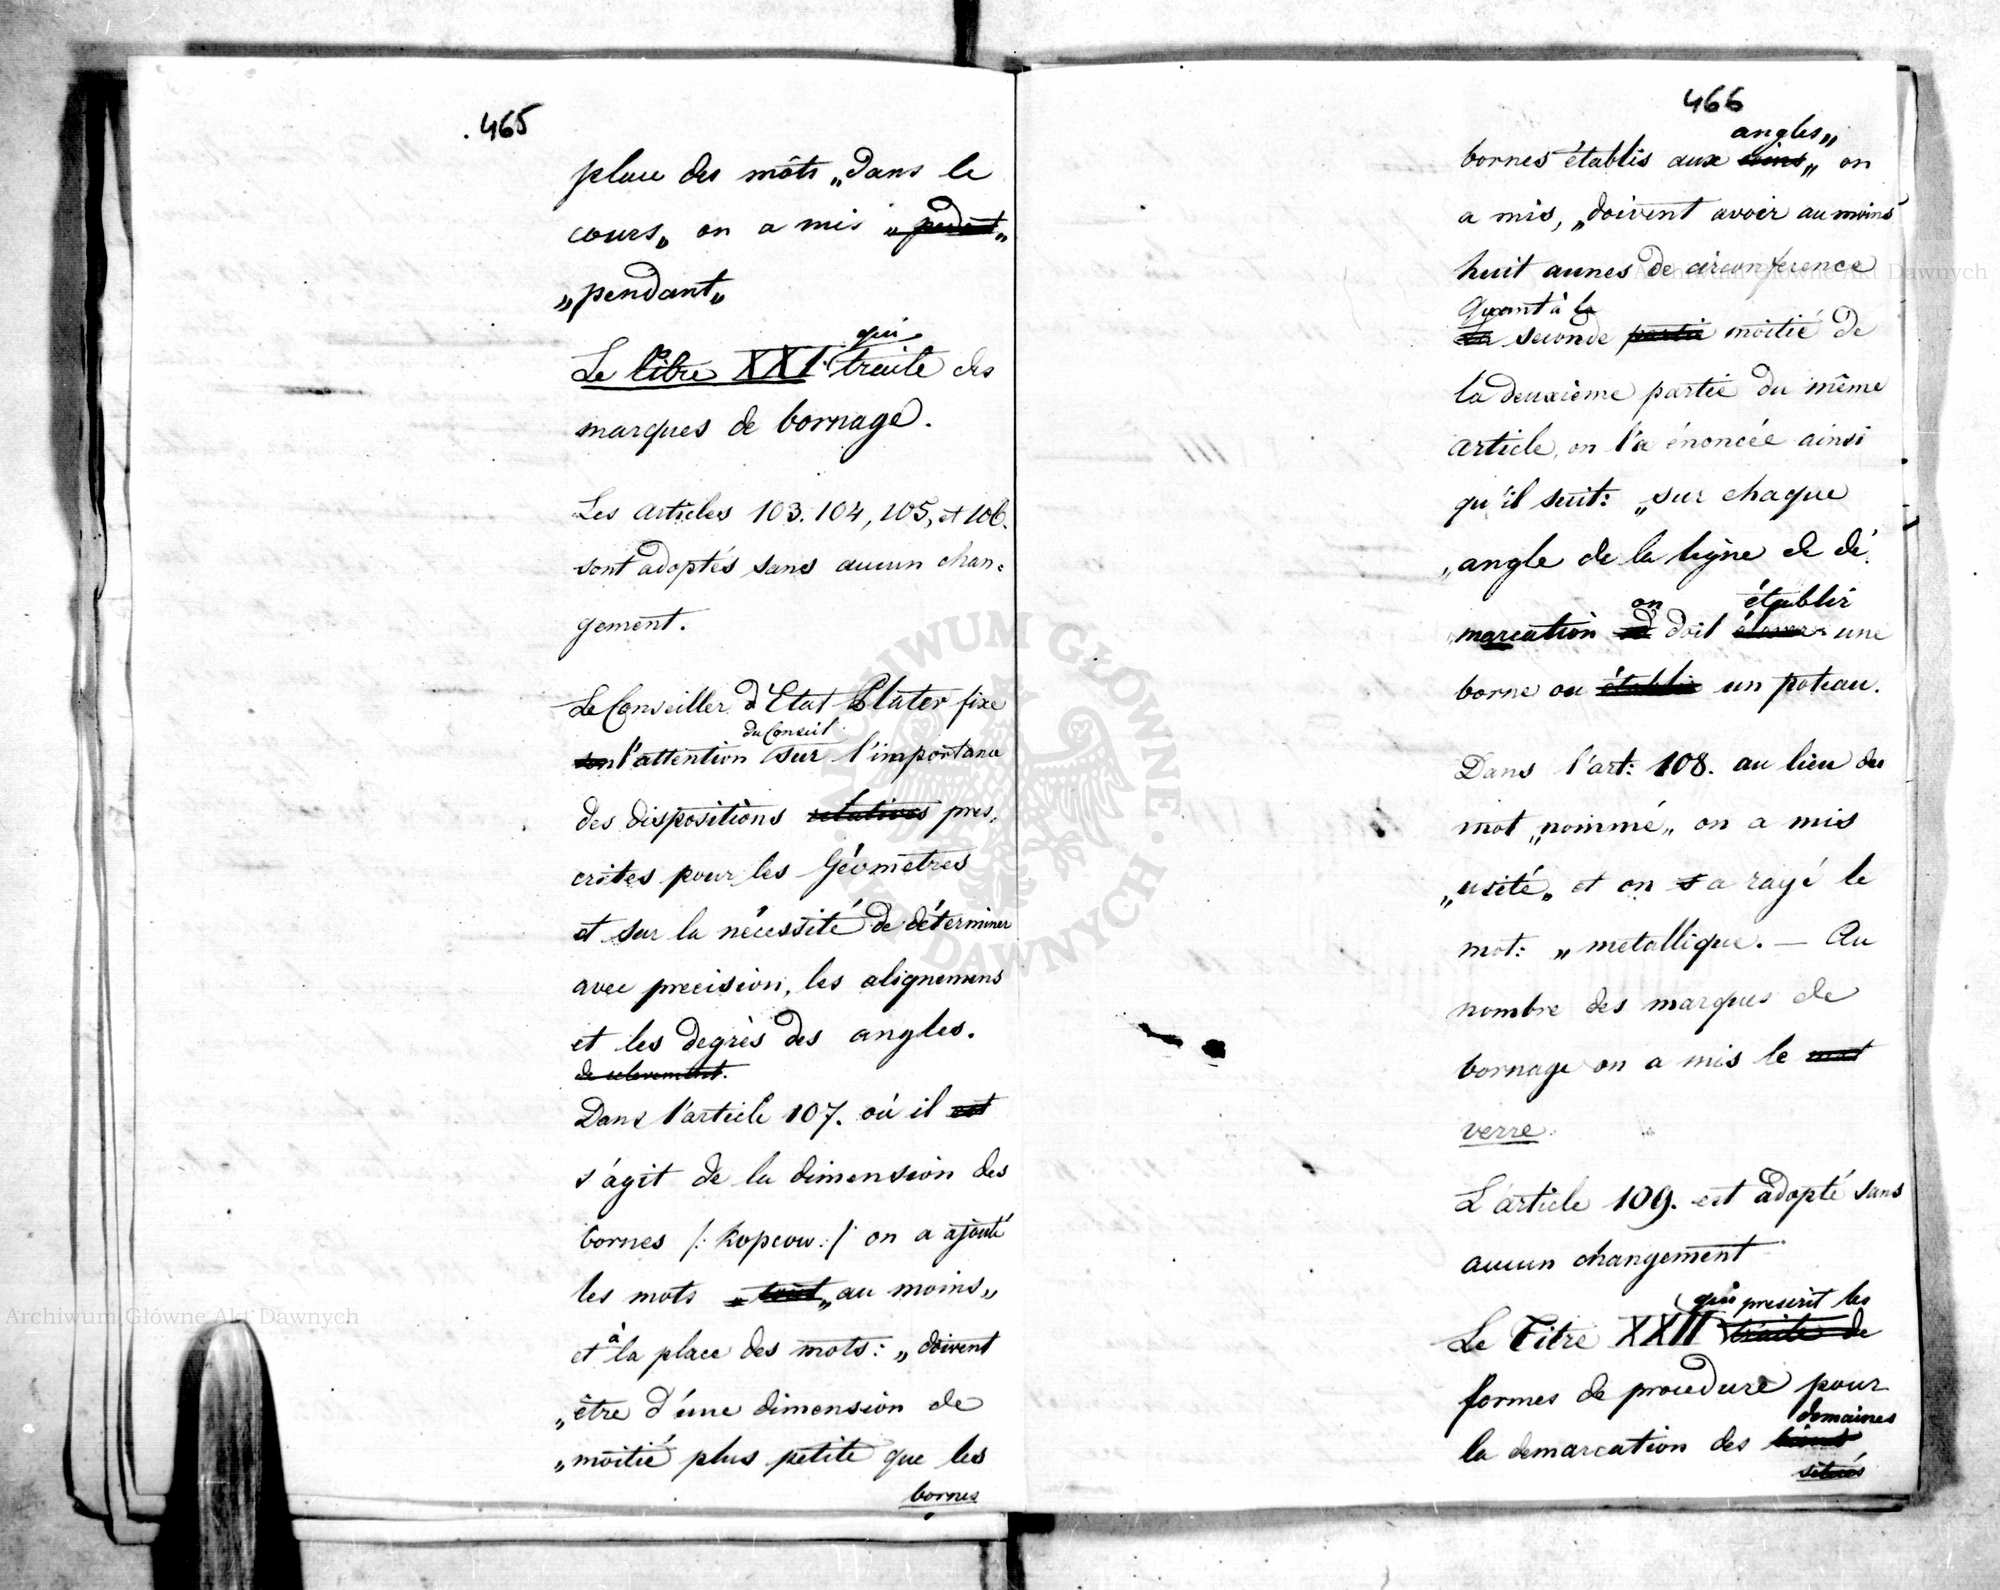 465
place des môts „dans le
cours„ on a mis „pendant„
„pendant„
qui
Le Titre XXI. traite des
marques de bornage.
Les articles 103. 104, 105, et 106.
sont adoptés sans aucun chan-
gement.
Le Conseiller d'Etat Plater fixe
du Conseil
son l'attention sur l'importance
des dispositions relatives pres-
crites pour les Géometres
et sur la nécessité de déterminer
avec precision, les alignemens
et les degrès des angles.
de relevement.
Dans l'article 107. où il est
s'agit de la dimension des
bornes /: kopcow :/ on a ajouté
les mots „tout„ au moins„
et à la place des mots: „doivent
„être d'une dimension de
„moitié plus petite que les
bornes
466
angles„
bornes établis aux coins„ on
a mis, „doivent avoir au moins
huit aunes de circonference
Quant à la
La seconde partie moitié de
la deuxième partie du même
article, on l'a énoncée ainsi
qu'il suit: „sur chaque
„angle de la ligne de dé-
on établir
marcation doit élever une
borne ou établir un poteau.
Dans l'art: 108. au lieu du
mot „nommé„ on a mis
„usité„ et on a rayé le
mot: „metallique. — Au
nombre des marques de
bornage on a mis le mot
verre.
L'article 109. est adopté sans
aucun changement
qui prescrit les
Le Titre XXII traite de
formes de procedure pour
domaines
la demarcation des biens
situés
Archiwum Główne Akt Dawnych
Archiwum Główne Akt Dawnych
ARCHIWUM GŁÓWNE AKT DAWNYCH